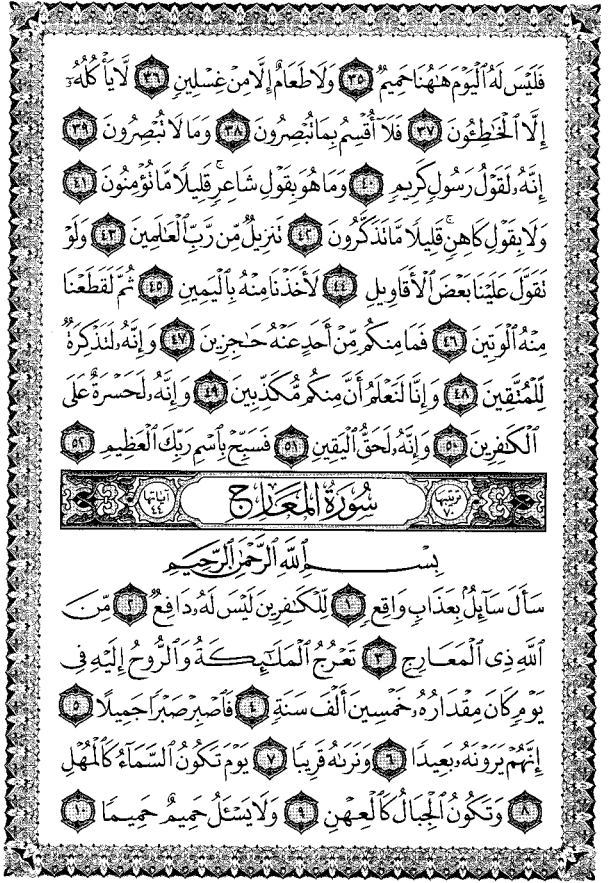 فَلَيْسَ لَهُ ٱلْيَوْمَ هَٰهُنَا حَمِيمٌ ٣٥ وَلَا طَعَامٌ إِلَّا مِنْ غِسْلِينٍ ٣٦ لَّا يَأْكُلُهُۥٓ
إِلَّا ٱلْخَٰطِـُٔونَ ٣٧ فَلَآ أُقْسِمُ بِمَا تُبْصِرُونَ ٣٨ وَمَا لَا تُبْصِرُونَ ٣٩
إِنَّهُۥ لَقَوْلُ رَسُولٍ كَرِيمٍ ٤٠ وَمَا هُوَ بِقَوْلِ شَاعِرٍۚ قَلِيلًا مَّا تُؤْمِنُونَ ٤١
وَلَا بِقَوْلِ كَاهِنٍۚ قَلِيلًا مَّا تَذَكَّرُونَ ٤٢ تَنزِيلٌ مِّن رَّبِّ ٱلْعَٰلَمِينَ ٤٣ وَلَوْ
تَقَوَّلَ عَلَيْنَا بَعْضَ ٱلْأَقَاوِيلِ ٤٤ لَأَخَذْنَا مِنْهُ بِٱلْيَمِينِ ٤٥ ثُمَّ لَقَطَعْنَا
مِنْهُ ٱلْوَتِينَ ٤٦ فَمَا مِنكُم مِّنْ أَحَدٍ عَنْهُ حَٰجِزِينَ ٤٧ وَإِنَّهُۥ لَتَذْكِرَةٌ
لِّلْمُتَّقِينَ ٤٨ وَإِنَّا لَنَعْلَمُ أَنَّ مِنكُم مُّكَذِّبِينَ ٤٩ وَإِنَّهُۥ لَحَسْرَةٌ عَلَى
ٱلْكَٰفِرِينَ ٥٠ وَإِنَّهُۥ لَحَقُّ ٱلْيَقِينِ ٥١ فَسَبِّحْ بِٱسْمِ رَبِّكَ ٱلْعَظِيمِ ٥٢
ترتيبها ٧٠ سُورَةُ المَعَارِج آياتها ٤٤
بِسْمِ ٱللَّهِ ٱلرَّحْمَٰنِ ٱلرَّحِيمِ
سَأَلَ سَآئِلٌۢ بِعَذَابٍ وَاقِعٍ ١ لِّلْكَٰفِرِينَ لَيْسَ لَهُۥ دَافِعٌ ٢ مِّنَ
ٱللَّهِ ذِى ٱلْمَعَارِجِ ٣ تَعْرُجُ ٱلْمَلَٰٓئِكَةُ وَٱلرُّوحُ إِلَيْهِ فِى
يَوْمٍ كَانَ مِقْدَارُهُۥ خَمْسِينَ أَلْفَ سَنَةٍ ٤ فَٱصْبِرْ صَبْرًا جَمِيلًا ٥
إِنَّهُمْ يَرَوْنَهُۥ بَعِيدًا ٦ وَنَرَىٰهُ قَرِيبًا ٧ يَوْمَ تَكُونُ ٱلسَّمَآءُ كَٱلْمُهْلِ
٨ وَتَكُونُ ٱلْجِبَالُ كَٱلْعِهْنِ ٩ وَلَا يَسْـَٔلُ حَمِيمٌ حَمِيمًا ١٠